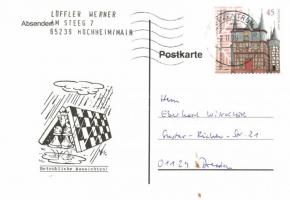 LÖFFLER WERNER
Absender: AM STEEG 7
65239 HOCHHEIM/MAIN
45
Postkarte
Herrn
Eberhard
Gustav - Richter - Str. 21
01129 Dresden
Betrübliche Aussichten!